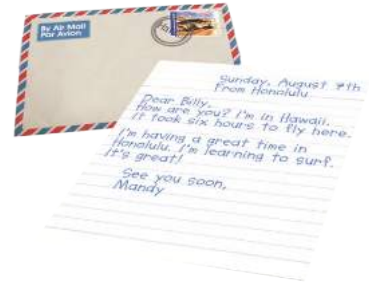 By Air Mail
Par Avion
Sunday, August 7th
From Honolulu
Dear Billy,
How are you? I'm in Hawaii.
It took six hours to fly here.
I'm having a great time in
Honolulu. I'm learning to surf.
It's great!
See you soon,
Mandy